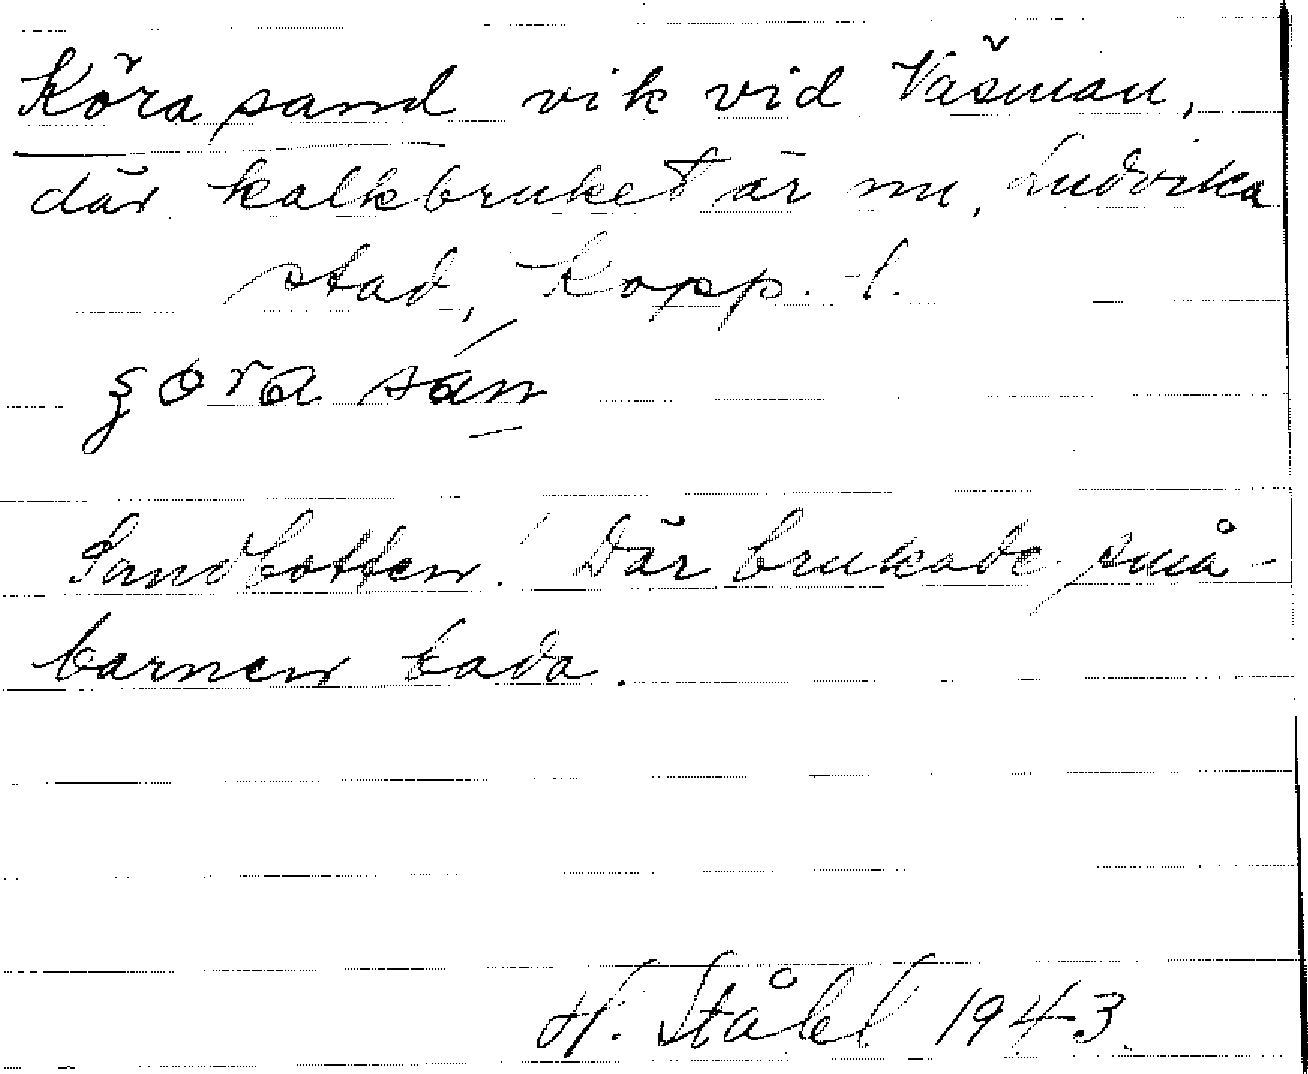 Köra sand vik vid Väsman,
där kalkbruket är nu, Ludvika
stad, Kopp. l.
sand
Sandbotten! Där brukade små-
barnen bada.
H. Ståhl 1943.